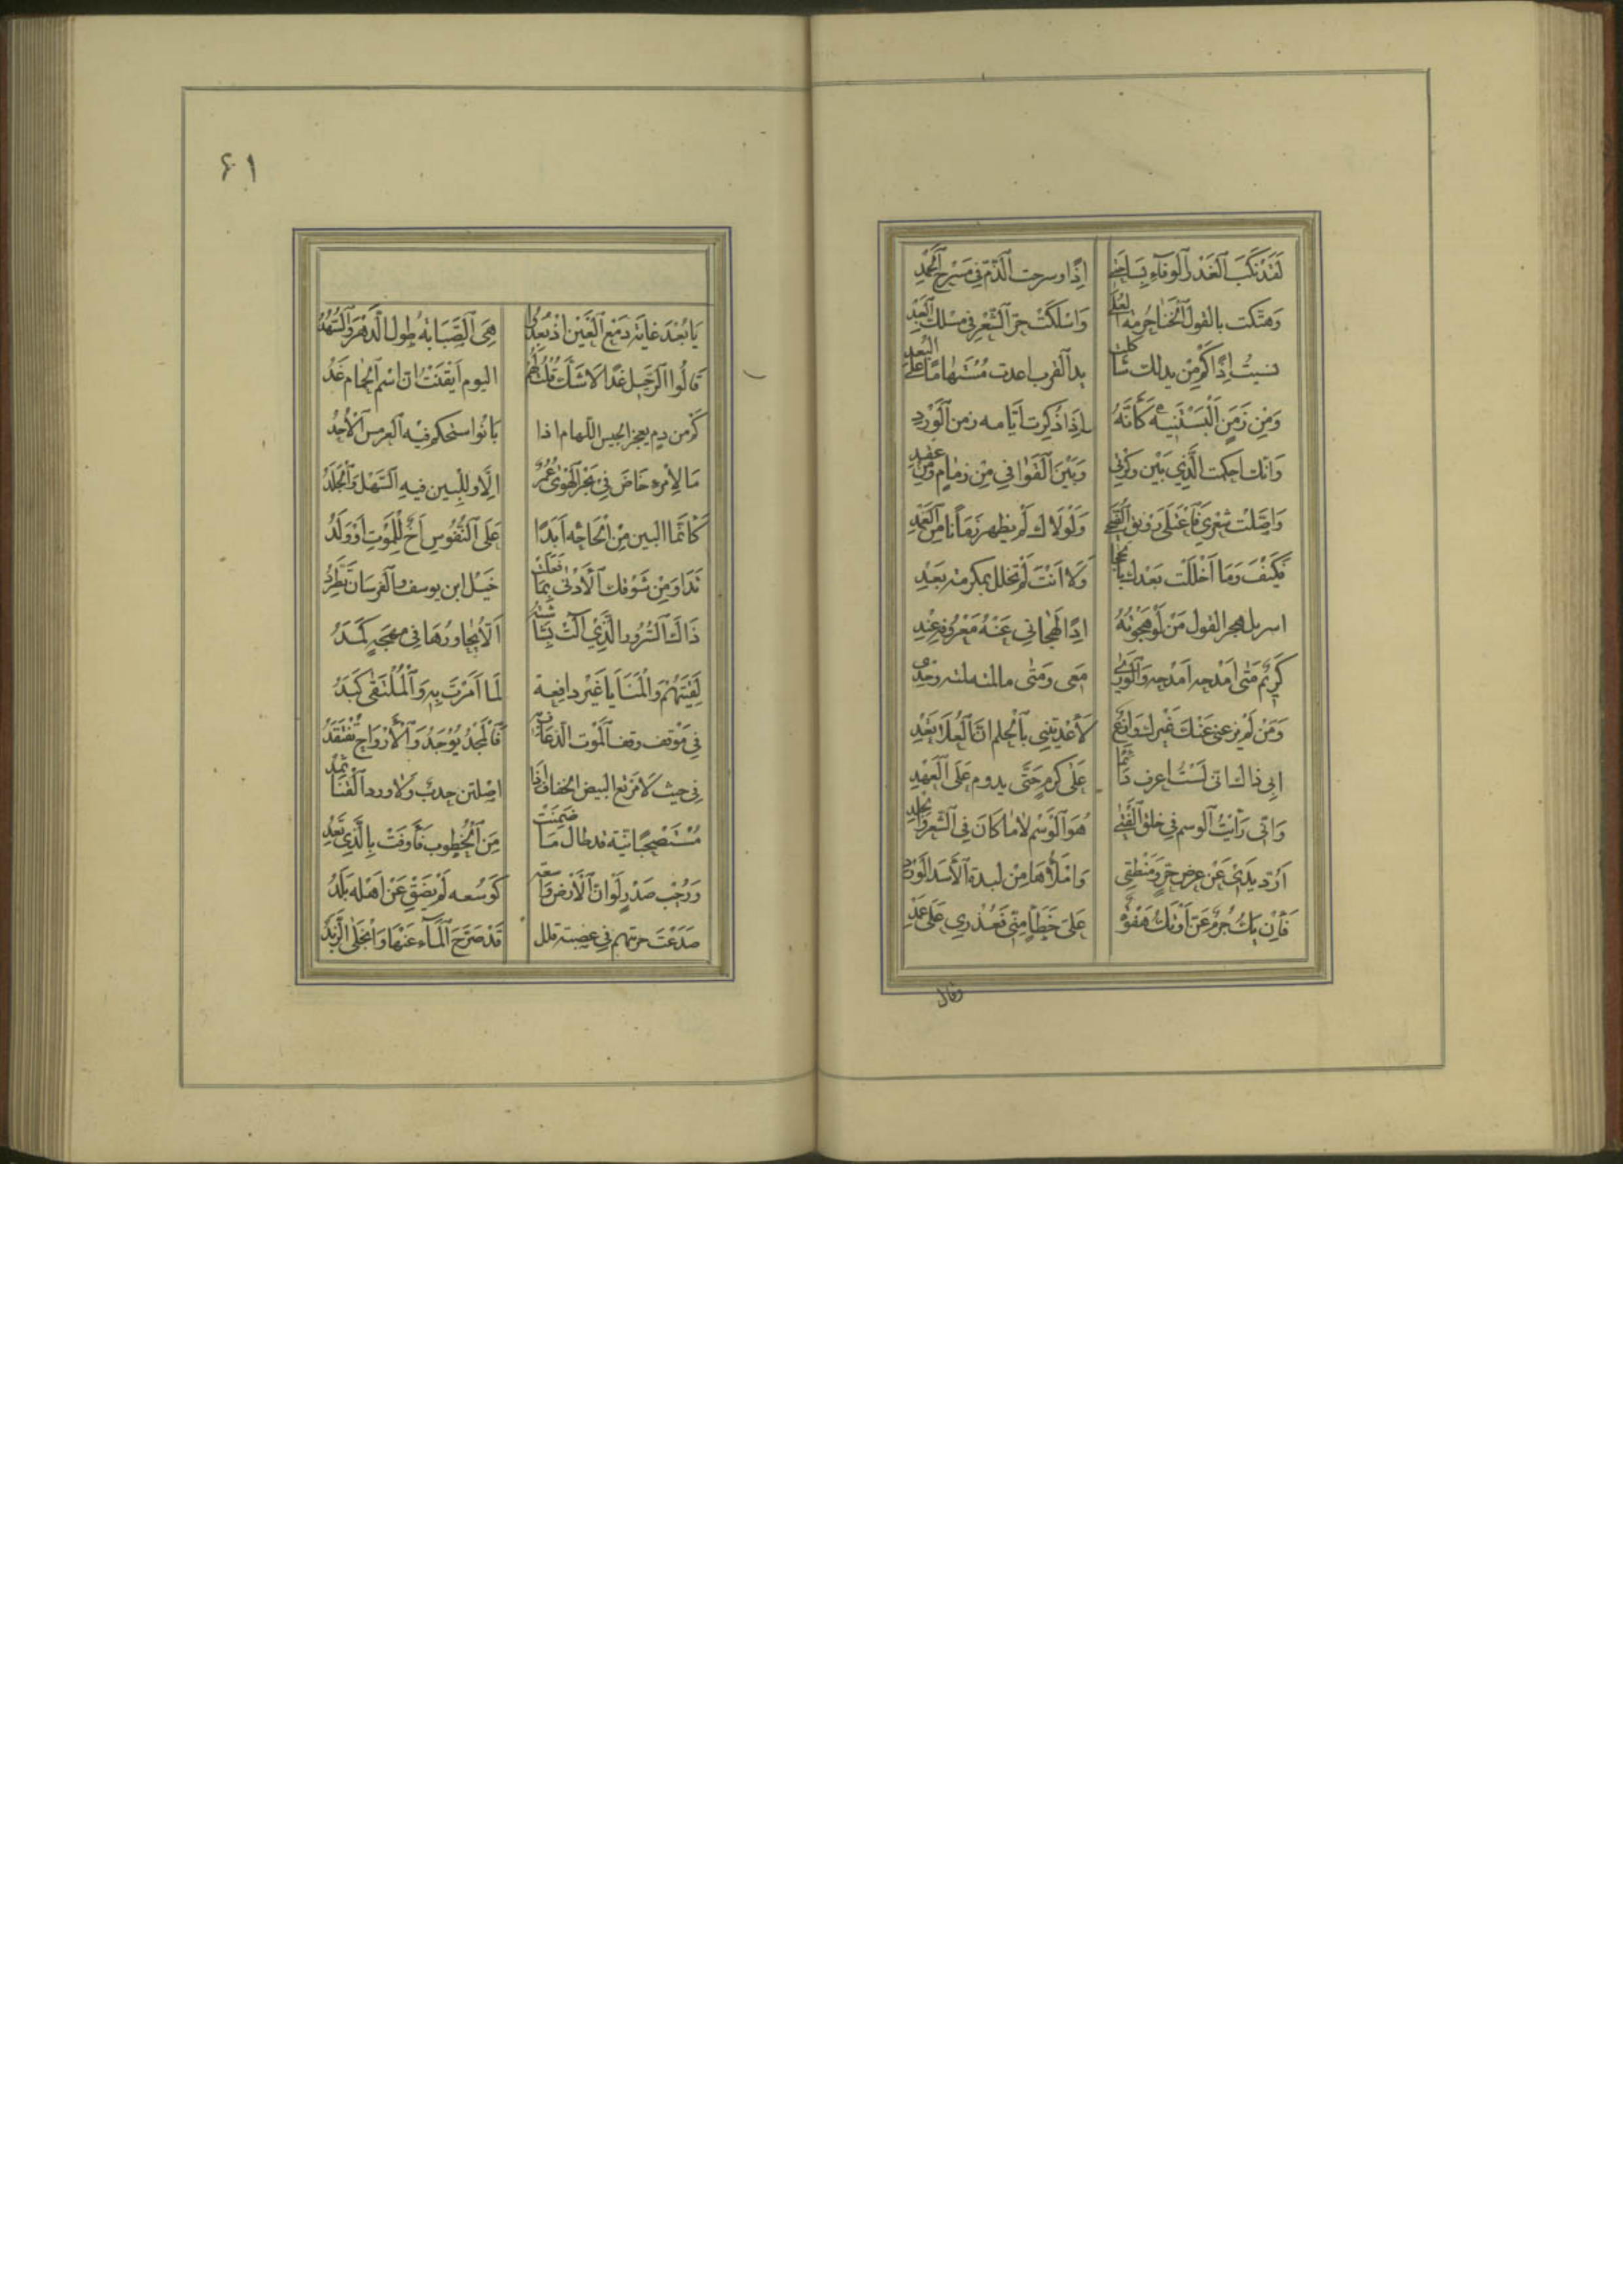 لَقَدْ نَكَبَ ٱلْغَدْرُ ٱلْوَفَاءَ بِسَاحَتِي إِذًا وسرحت ٱلذَّمَّ فِي مَسْرَحِ ٱلْحَمْدِ
وَهَتَكْتُ بالقول ٱلْخَنَا حُرْمَةَ ٱلْعُلَى وَاسْلَكْتُ حُرَّ ٱلشِّعْرِ فِي مسلك ٱلْعَبْدِ
نسيتُ إِذًا كَمْ مِنْ يد لك شاكلت يد ٱلقرب اعدت مُسْتَهَامًا عَلَى ٱلبُعْدِ
وَمِنْ زَمَنٍ ٱلْبَسْتَنِيهِ كَأَنَّهُ إِذَا ذُكِرَتْ أَيَّامه زمن ٱلْوَرْدِ
وَانّك احكمت الَّذِي بَيْن فكرتي وَبَيْنَ ٱلْقَوَافِي مِنْ ذِمَامٍ وَمِنْ عقد
وَاصَّلت شعري فاعتلى رونق ٱلضُّحَى وَلَوْلَاك لَمْ يظهر زَمَانًا مِنَ ٱلْغِمْدِ
فَكَيْفَ وَمَا أَخْلَلْتُ بَعْدَك بِالْحِجَا وَلَا أَنْتَ لَمْ تخلل بمكرمة بَعْدِي
اسربل هجر القول مَنْ لَوْ هَجَوْتُهُ إِذًا لَهَجَانِي عَنْهُ مَعْرُوفُهُ عِنْدِي
كَرِيمٌ مَتَى امْدحه امْدحه وَٱلْوَرَى مَعِي وَمَتَى مالمته لمته وحدي
وَمَنْ لَمْ يزعني عَنْكَ غَيْرَك وازع لأعديتني بِٱلْحلم انّ ٱلْعُلَا تُعْدِي
أَبَى ذاك انّي لَسْتُ اعرف دائما عَلَى كرمٍ حَتَّى يدوم عَلَى ٱلْعَهْدِ
وَانّي رَأَيْتُ ٱلوسم فِي خلق ٱلْفَتَى هُوَ ٱلْوَسْمُ لَا مَا كَانَ فِي ٱلشَّعْرِ وَٱلْجِلْدِ
أَرُدُّ يَدِي عَنْ عِرْضِ حُرٍّ وَمَنْطِقِي وَامْلَأُهَا مِنْ لبدة ٱلْأَسَد ٱلْوَرْدِ
فَإِنْ يَكُ جُرْمٌ عَنَّ أَوْ تَكُ هَفْوَةٌ عَلَى خَطَأٍ مِنِّي فَعُذْرِي عَلَى عَمْدِ
وقال
۶۱
يَا بُعْدَ غَايَةِ دَمْعِ ٱلْعَيْنِ إِذْ بَعُدُوا هِيَ ٱلصَّبَابَةُ طول ٱلدَّهْرِ وَٱلسُّهُدُ
قَالُوا ٱلرَّحِيلُ غَدًا لَا شَكَّ قُلْتُ لَهُمْ اليوم أَيْقَنْتُ انّ اسْم ٱلْحِمَام غَدُ
كَمْ من دم يعجز الجيش اللهام اذا بَانُوا ستحكم فيه ٱلعرمس ٱلْأُجُدُ
مَا لِأمرءٍ خَاضَ فِي بَحْرِ ٱلْهَوَى عُمُرٌ إِلَّا وللبين فيه ٱلسَّهْلُ وَٱلْجَلَدُ
كَأَنَّمَا البين مِنْ إِلْحَاحِهِ أَبَدًا عَلَى ٱلنُّفُوسِ أَخٌ لِلْمَوْتِ أَوْ وَلَدُ
تَدَاوَ مِنْ شَوْقِكَ ٱلْأَدْنَى بِمَا فَعَلَتْ خَيْلُ ابن يوسف وٱلفرسان تَطَّرِدُ
ذَاكَ ٱلسُّرُور الَّذِي آلَتْ بَشَاشَتُهُ أَلَّا يُجاورهَا فِي مهجة كَمَدُ
لَقِيتَهُمْ وَالْمَنَايَا غَيْرُ دافعة لِمَا أَمَرْتَ بِهِ وَٱلْمُلْتَقَى كَبَدُ
فِي مَوْقِف وقف ٱلْمَوْت ٱلذّعاف به فَٱلْمَجْدُ يُوْجَدُ وَٱلْأَرْوَاح تُفْتَقَدُ
فِي حيث لَا مَرْتَع البيض الخفاف إِذَا اصلتن جدب وَلَا ورد ٱلْقَنَا ثَمَدُ
مُسْتَصْحِبًا نِيَّةً قد طال مَا ضَمِنَتْ مِنَ ٱلْخُطُوبِ فَأَوْفَتْ بِالَّذِي تَعِدُ
وَرُحْبِ صَدْرٍ لَوْ انّ ٱلْأَرْضَ وَاسعة كَوُسْعِهِ لَمْ يَضِقْ عَنْ أَهْلِهِ بَلَدُ
صَدَعْتَ جريتهم فِي عصبة قلل قَدْ صَرَّحَ ٱلْمَاءُ عَنْهَا وَٱنْجَلَى ٱلزَّبَدُ